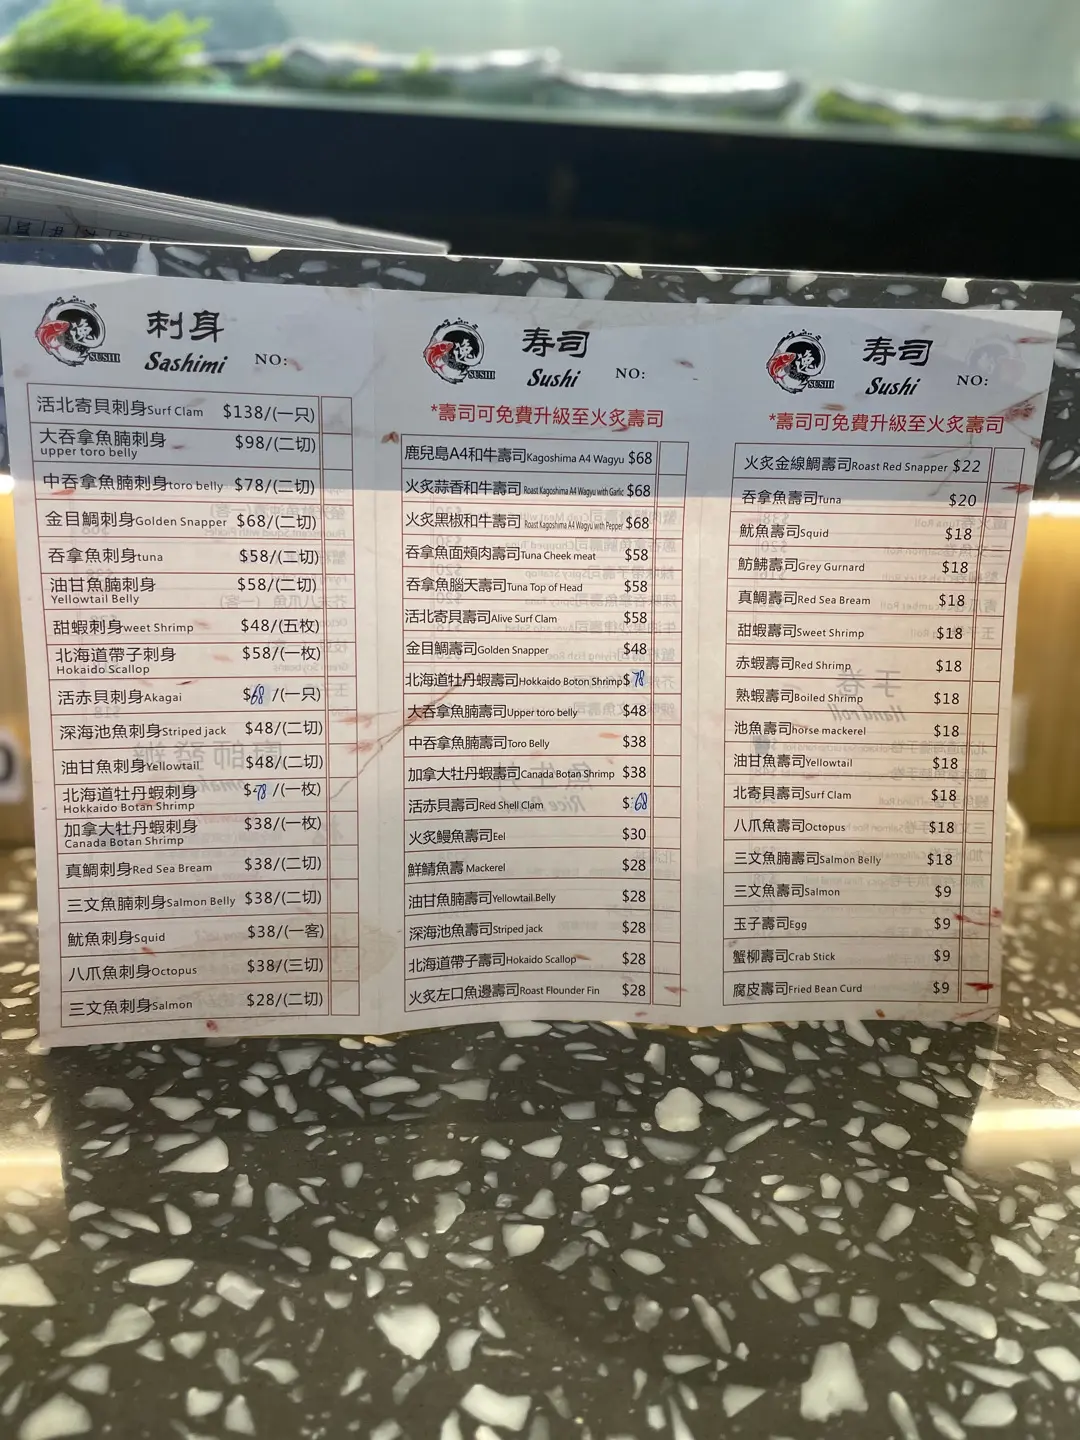 逸
SUSHI
刺身
Sashimi
NO:
活北寄貝刺身Surf Clam $138/(一只)
大吞拿魚腩刺身 $98/(二切)
upper toro belly
中吞拿魚腩刺身toro belly $78/(二切)
金目鯛刺身Golden Snapper $68/(二切)
吞拿魚刺身tuna $58/(二切)
油甘魚腩刺身 $58/(二切)
Yellowtail Belly
甜蝦刺身weet Shrimp $48/(五枚)
北海道帶子刺身 $58/(一枚)
Hokaido Scallop
活赤貝刺身Akagai $68/(一只)
深海池魚刺身Striped jack $48/(二切)
油甘魚刺身Yellowtail $48/(二切)
北海道牡丹蝦刺身 $78/(一枚)
Hokkaido Botan Shrimp
加拿大牡丹蝦刺身 $38/(一枚)
Canada Botan Shrimp
真鯛刺身Red Sea Bream $38/(二切)
三文魚腩刺身Salmon Belly $38/(二切)
魷魚刺身Squid $38/(一客)
八爪魚刺身Octopus $38/(三切)
三文魚刺身Salmon $28/(二切)
逸
SUSHI
寿司
Sushi
NO:
*壽司可免費升級至火炙壽司
鹿兒島A4和牛壽司Kagoshima A4 Wagyu $68
火炙蒜香和牛壽司Roast Kagoshima A4 Wagyu with Garlic $68
火炙黑椒和牛壽司Roast Kagoshima A4 Wagyu with Pepper $68
吞拿魚面頰肉壽司Tuna Cheek meat $58
吞拿魚腦天壽司Tuna Top of Head $58
活北寄貝壽司Alive Surf Clam $58
金目鯛壽司Golden Snapper $48
北海道牡丹蝦壽司Hokkaido Boton Shrimp $78
大吞拿魚腩壽司Upper toro belly $48
中吞拿魚腩壽司Toro Belly $38
加拿大牡丹蝦壽司Canada Botan Shrimp $38
活赤貝壽司Red Shell Clam $68
火炙鰻魚壽司Eel $30
鮮鯖魚壽 Mackerel $28
油甘魚腩壽司Yellowtail Belly $28
深海池魚壽司Striped jack $28
北海道帶子壽司Hokaido Scallop $28
火炙左口魚邊壽司Roast Flounder Fin $28
逸
SUSHI
寿司
Sushi
NO:
*壽司可免費升級至火炙壽司
火炙金線鯛壽司Roast Red Snapper $22
吞拿魚壽司Tuna $20
魷魚壽司Squid $18
魴鮄壽司Grey Gurnard $18
真鯛壽司Red Sea Bream $18
甜蝦壽司Sweet Shrimp $18
赤蝦壽司Red Shrimp $18
熟蝦壽司Boiled Shrimp $18
池魚壽司horse mackerel $18
油甘魚壽司Yellowtail $18
北寄壽司Surf Clam $18
八爪魚壽司Octopus $18
三文魚腩壽司Salmon Belly $18
三文魚壽司Salmon $9
玉子壽司Egg $9
蟹柳壽司Crab Stick $9
腐皮壽司Fried Bean Curd $9